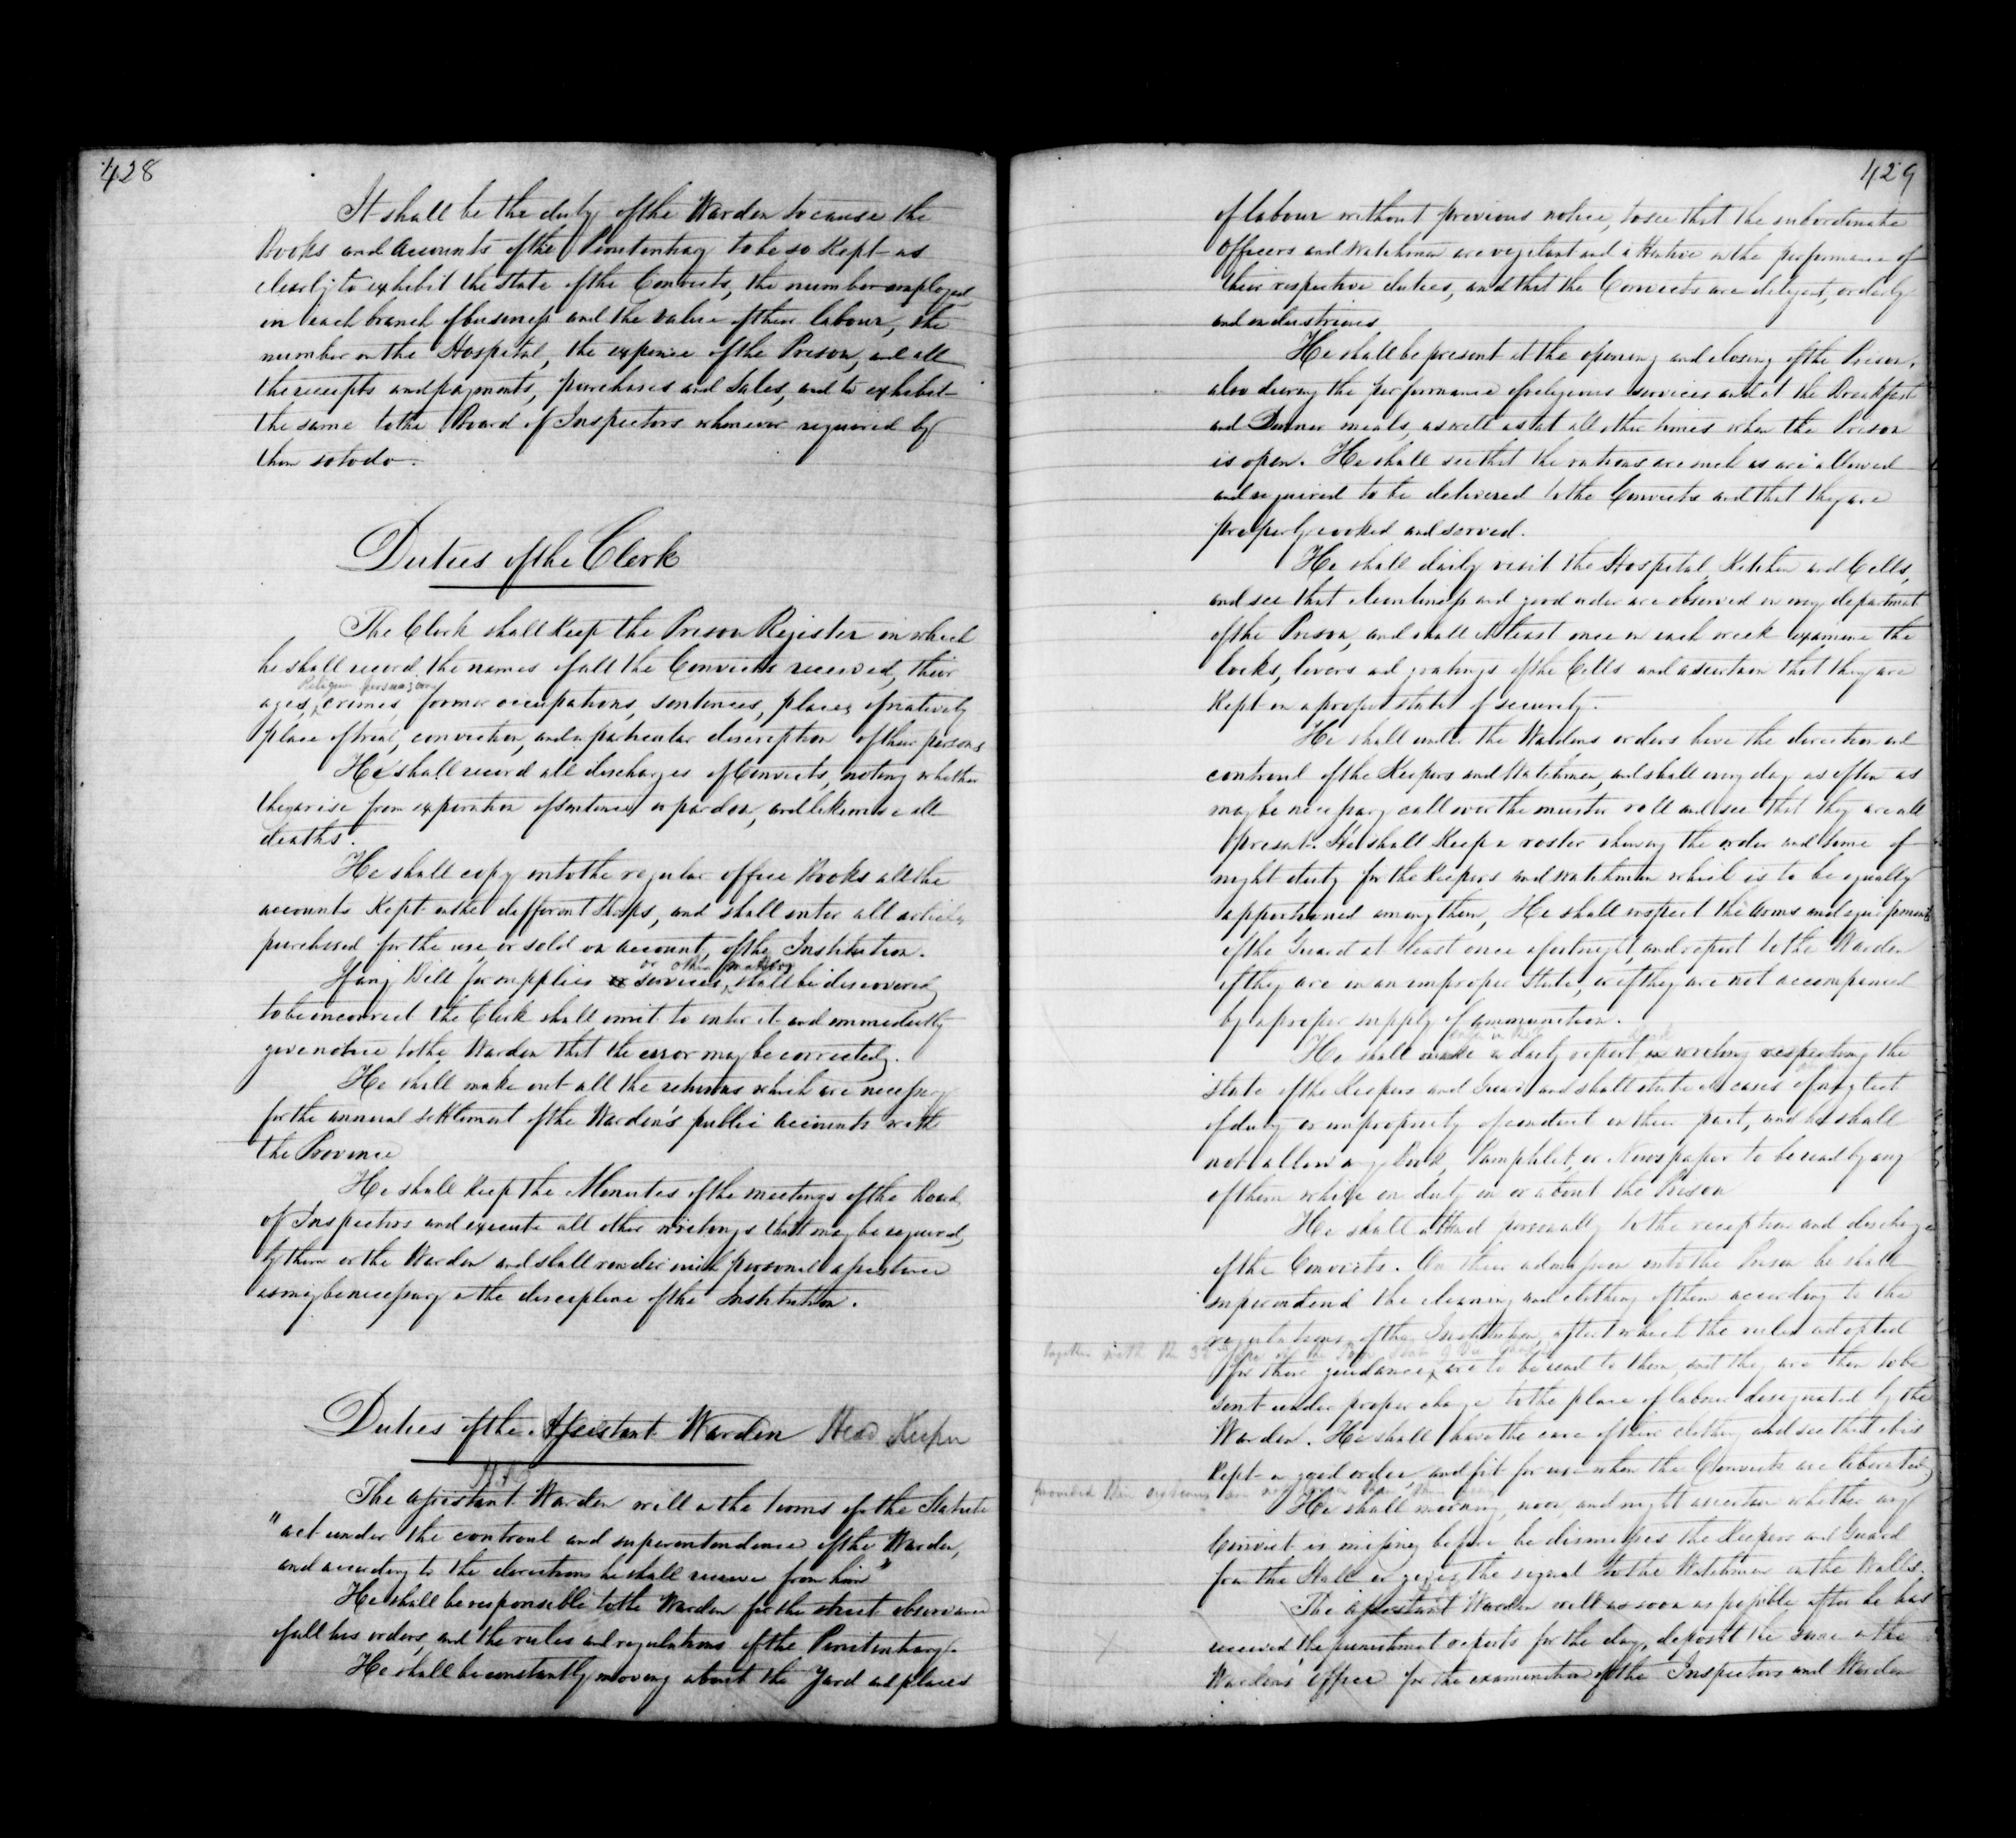 428
It shall be the duty of the Warden to cause the
Books and Accounts of the Penitentiary to be so Kept as
clearly to exhibit the state of the Convicts, the number employed
in each branch of business and the value of their labour, the
number in the Hospital, the expense of the Prison, and all
the receipts and payments, purchases and sales, and to exhibit
the same to the Board of Inspectors whenever required by
them so to do.
Duties of the Clerk
The Clerk shall Keep the Prison Register in which
he shall record the names of all the Convicts received, their
Religious persuasions
ages, crimes former occupations, sentences, places of nativity
place of trial, conviction, and a particular description of their persons
He shall record all discharges of Convicts, noting whether
they arise from expiration of sentence or pardon, and likewise all
deaths.
He shall copy into the regular office Books all the
accounts Kept in the different Shops, and shall enter all articles
purchased for the use, or sold on account, of the Institution.
or other matters
If any Bill for supplies or services, shall be discovered
to be incorrect the Clerk shall omit to enter it and immediately
give notice to the Warden that the error may be corrected.
He shall make out all the returns which are necessary
for the annual settlement of the Warden's public accounts with
the Province
He shall Keep the Minutes of the meetings of the Board
of Inspectors and execute all other writings that may be required
by them or the Warden and shall render such personal assistance
as may be necessary in the discipline of the Institution.
Duties of the Assistant Warden Head Keeper
The assistant Warden will in the terms of the Statute
"act under the controul and superintendence of the Warden,
and according to the directions he shall receive from him"
He shall be responsible to the Warden for the strict observance
of all his orders, and the rules and regulations of the Penitentiary.
He shall be constantly moving about the Yard and places
429
of labour without previous notice, to see that the subordinate
Officers and Watchmen are vigilant and attentive in the performance of
their respective duties, and that the Convicts are diligent, orderly
and industrious
He shall be present at the opening and closing of the Prison,
also during the performance of religious services and at the Breakfast
and Dinner meals, as well as at all other times when the Prison
is open. He shall see that the rations are such as are allowed
and required to be delivered to the Convicts and that they are
properly cooked and served.
He shall daily visit the Hospital, Kitchen and Cells,
and see that cleanliness and good order are observed in every department
of the Prison, and shall at least once in each week examine the
locks, levers and gratings of the Cells and ascertain that they are
Kept in a proper state of security.
He shall under the Wardens orders have the direction and
controul of the Keepers and Watchmen, and shall every day as often as
may be necessary call over the muster roll and see that they are all
present. He shall Keep a roster shewing the order and time of
night duty for the Keepers and watchmen which is to be equally
apportioned among them, He shall inspect the arms and equipments
of the Guard at least once a fortnight, and report to the Warden
if they are in an improper State, or if they are not accompanied
by a proper supply of ammunition.
He shall make a daily report in writing respecting the
state of the Keepers and Guard and shall state all cases of neglect
of duty or impropriety of conduct on their part, and he shall
not allow any Book, Pamphlet, or Newspaper to be read by any
of them while on duty in or about the Prison
He shall attend personally to the reception and discharge
of the Convicts. On their admission into the Prison he shall
superintend the cleaning and clothing of them according to the
regulations of the Institution, after which the rules adopted
together with the
for their guidance, are to be read to them, and they are then to be
sent under proper charge to the place of labour designated by the
Warden. He shall have the care of their clothing and see that it is
Kept in good order and fit for use when the Convicts are liberated,
provided their
He shall morning, noon, and night ascertain whether any
Convict is missing before he dismisses the Keepers and Guard
from the Hall or gives the signal to the Watchmen on the Walls.
The assistant Warden will as soon as possible after he has
received the punishment reports for the day, deposit the same in the
Wardens Office for the examination of the Inspectors and Warden